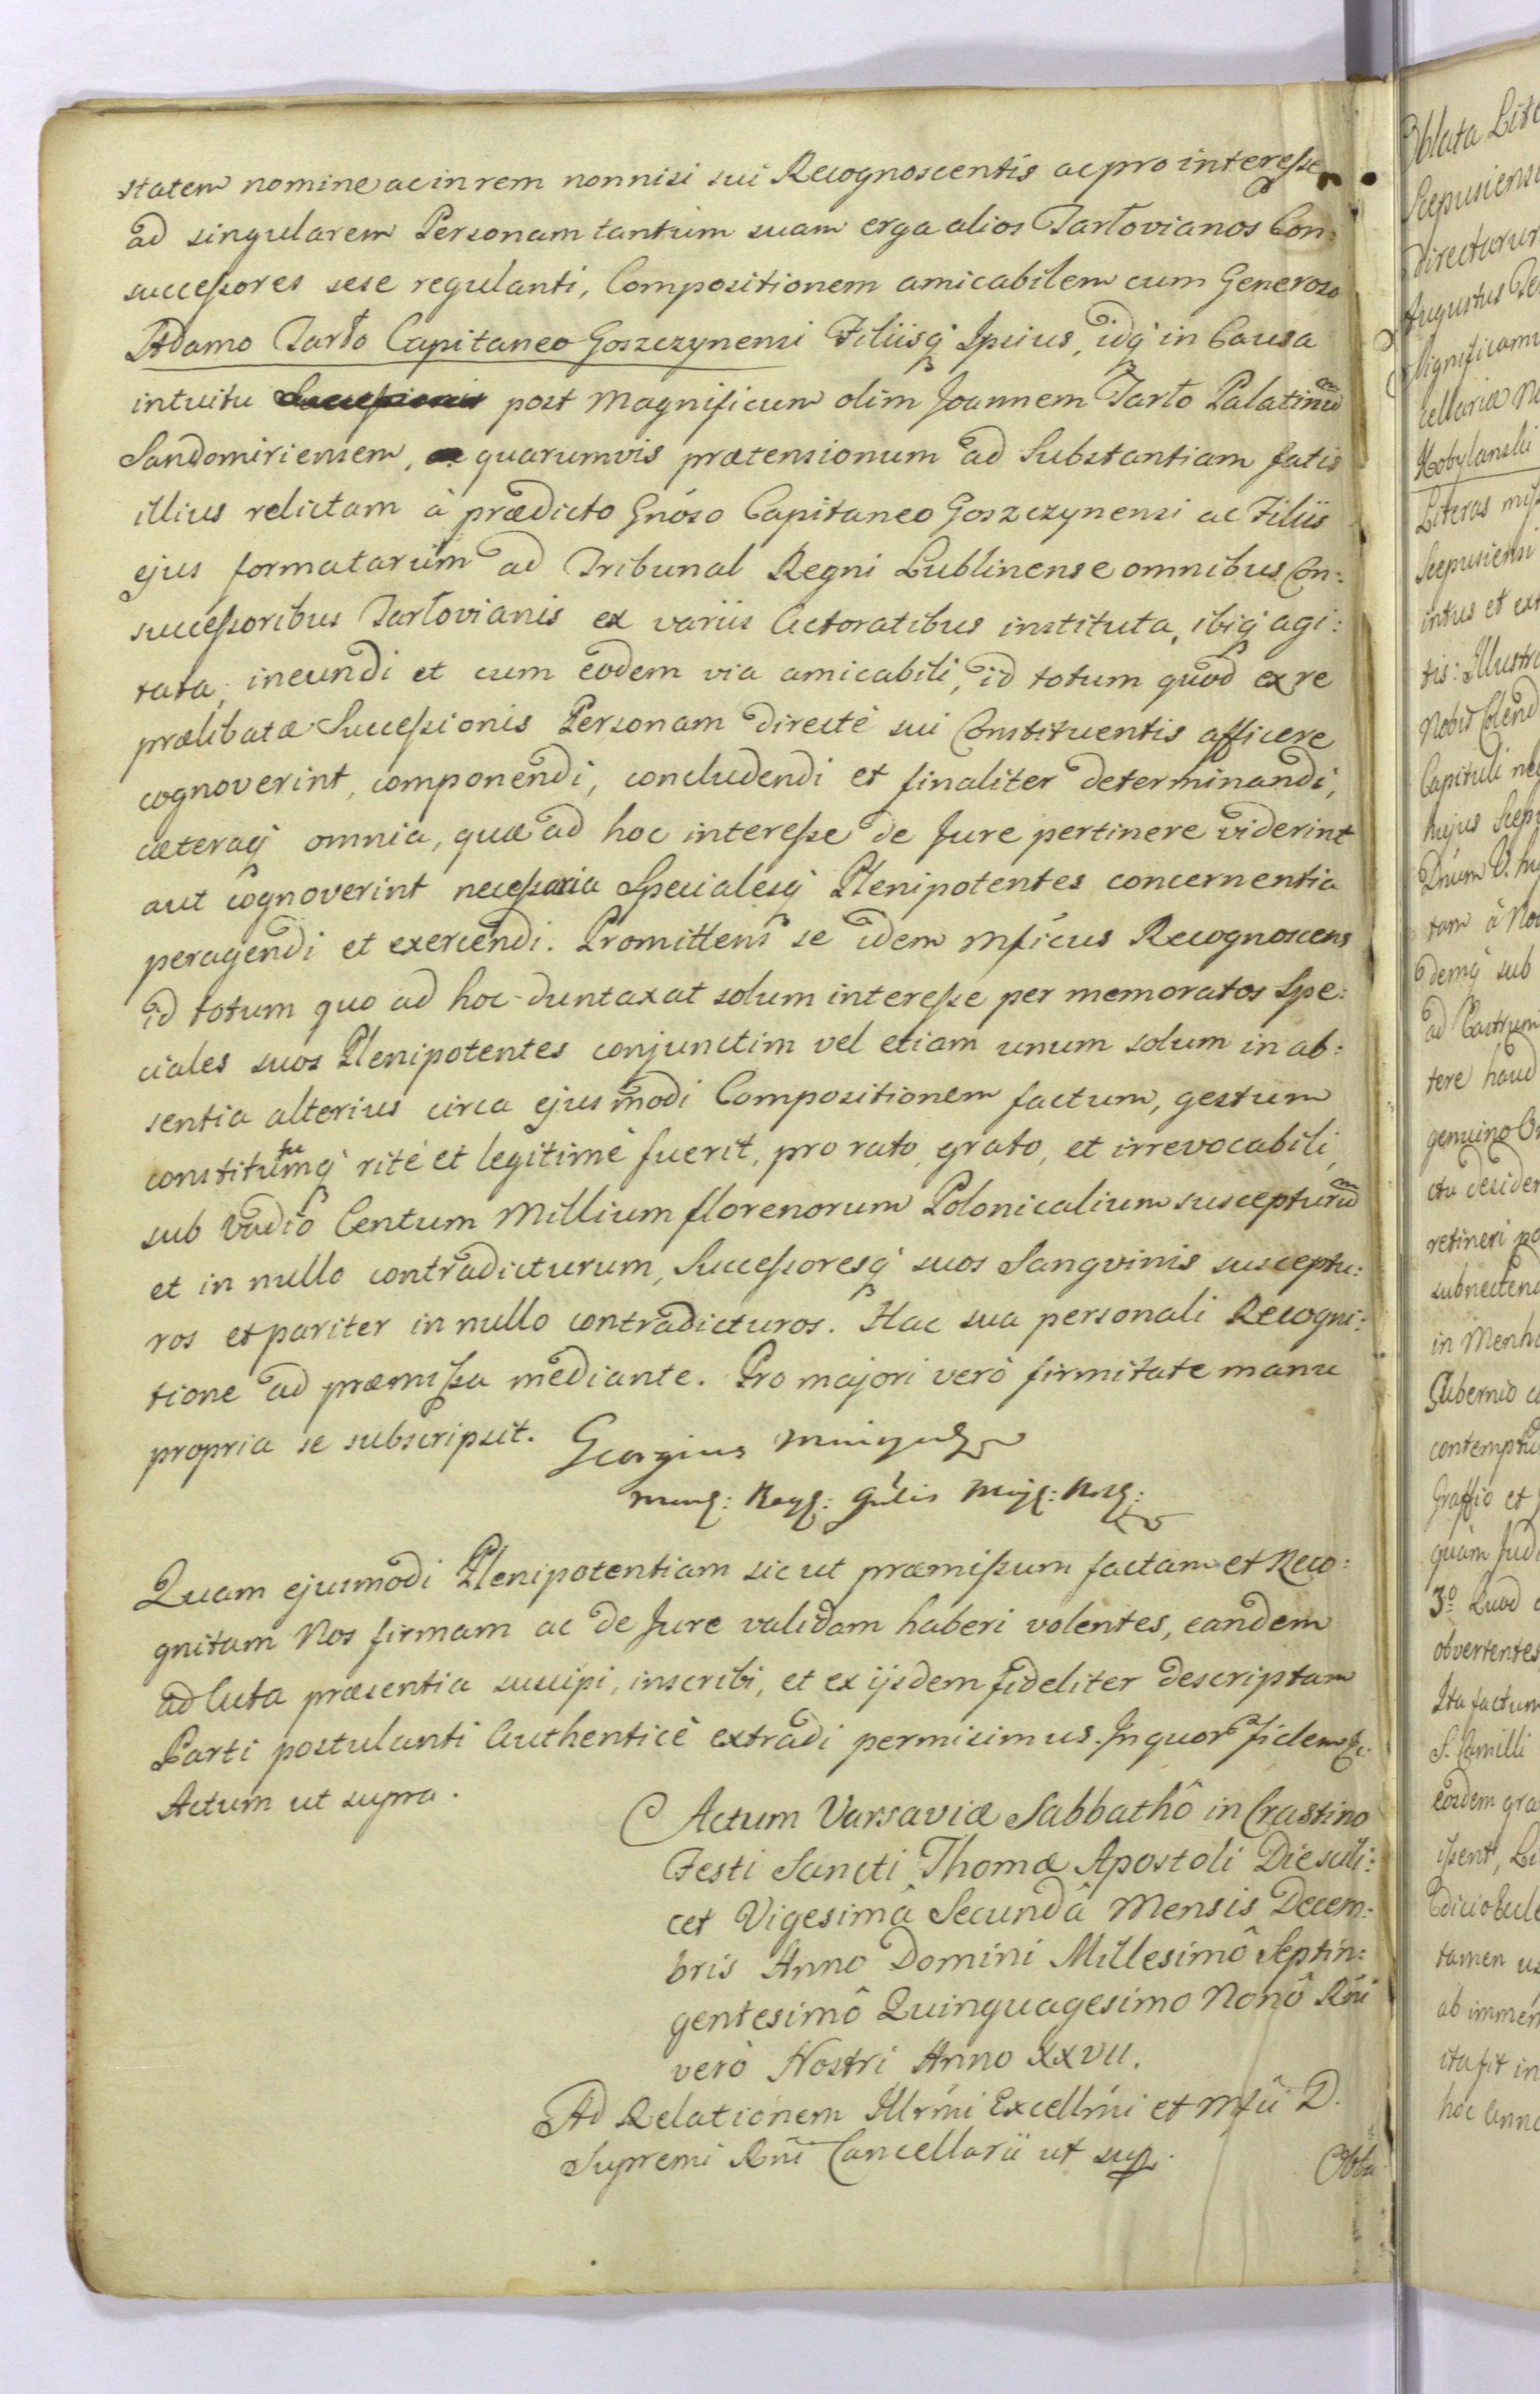 statem nomine ac in rem nonnisi sui Recognoscentis ac pro interesse
ad singularem Personam tantum suam erga alios Tarłovianos Con:
successores sese regulanti, Compositionem amicabilem cum Generoso
Adamo Tarło Capitaneo Goszczynensi Filiisq Ipsius, idq in Causa
intuitu Successionis post Magnificum olim Joannem Tarło Palatinũ
Sandomiriensem, quarumvis prætensionum ad Substantiam fatis
illius relictam à prædicto Gnóso Capitaneo Goszczynensi ac Filiis
ejus formatarum ad Tribunal Regni Lublinense omnibus Con:
successoribus Tarłovianis ex variis Actoratibus instituta, ibiq agi:
tata, ineundi et cum eodem via amicabili, id totum quod ex re
prælibatæ Successionis Personam directè sui Constituentis afficere
cognoverint, componendi, concludendi et finaliter determinandi,
cæteraq omnia, quæ ad hoc interesse de Jure pertinere viderint
aut cognoverint necessaria Specialesq Plenipotentes concernentia
peragendi et exercendi. Promittens se idem Mficus Recognoscens
id totum quo ad hoc duntaxat solum interesse per memoratos Spe:
ciales suos Plenipotentes conjunctim vel etiam unum solum in ab:
sentia alterius circa ejusmodi Compositionem factum, gestum
constitutumq ritè et legitimè fuerit, pro rato, grato, et irrevocabili,
sub vadio Centum Millium florenorum Polonicalium suscepturũ
et in nullo contradicturum, Successoresq suos Sangvinis susceptu:
ros et pariter in nullo contradicturos. Hac sua personali Recogni:
tione ad præmissa mediante. Pro majori verò firmitate manu
propria se subscripsit. Georgius Mniszech
Gnlis
Quam ejusmodi Plenipotentiam sic ut præmissum factam et Reco:
gnitam Nos firmam ac de Jure validam haberi volentes, eandem
ad Acta præsentia suscipi, inscribi, et ex ijsdem fideliter descriptam
Parti postulanti Authenticè extradi permisimus. In quor Fidem &c.
Actum ut supra.
Actum Varsaviæ Sabbathô in Crastino
Festi Sancti Thomæ Apostoli Die scili:
cet Vigesimâ Secundâ Mensis Decem:
bris Anno Domini Millesimô Septin:
gentesimô Quinquagesimo Nonô Rñi
verò Nostri Anno XXVII.
Ad Relationem Illrmi Excellmi et Mfci D.
Supremi Rñi Cancellarii ut sup.
Obla
Oblata Lite
Scepusiensi
directarum
Augustus
Significamu
cellariæ
Kobylanski
Literas
Scepusiensi
intus et ext
tis: Illustr
Nobis Colend
Capituli
hujus Scep
Dnum
tam à
demq sub
ad Castrum
tere haud
genuino
desider
retineri po
subnectend
in Menh
Gubernio
contemptu
Graffio et
quàm Judi
3º Quod
obvertentes
Ita factum
S. Camilli
eosdem gra
tamen
ab immem
ita fit in
hôc Anno